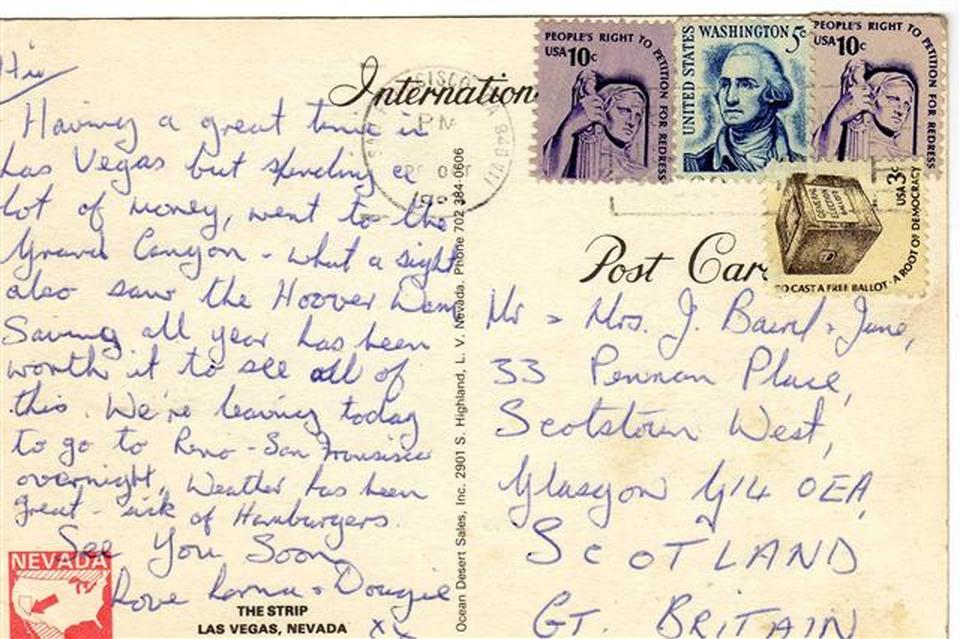 Hi
Having a great time in
Las Vegas but spending a
lot of money, went to the
Grand Canyon - what a sight
also saw the Hoover Dam
Saving all year has been
worth it to see all of
this. We're leaving today
to go to Reno - San Fransisco
overnight, Weather has been
great - sick of Hamburgers.
See You Soon
Love Lorna & Dougie
xx
NEVADA
THE STRIP
LAS VEGAS, NEVADA
Ocean Desert Sales, Inc. 2901 S. Highland, L. V. Nevada. Phone 702 384-0606
International
Post Car
PM
PEOPLE'S RIGHT TO PETITION FOR REDRESS
USA 10c
UNITED STATES
WASHINGTON 5c
PEOPLE'S RIGHT TO PETITION FOR REDRESS
USA 10c
USA 3c
TO CAST A FREE BALLOT · A ROOT OF DEMOCRACY
Mr & Mrs. J. Baird & June,
33 Pennan Place,
Scotstoun West,
Glasgow G14 0EA,
SCOTLAND
GT. BRITAIN